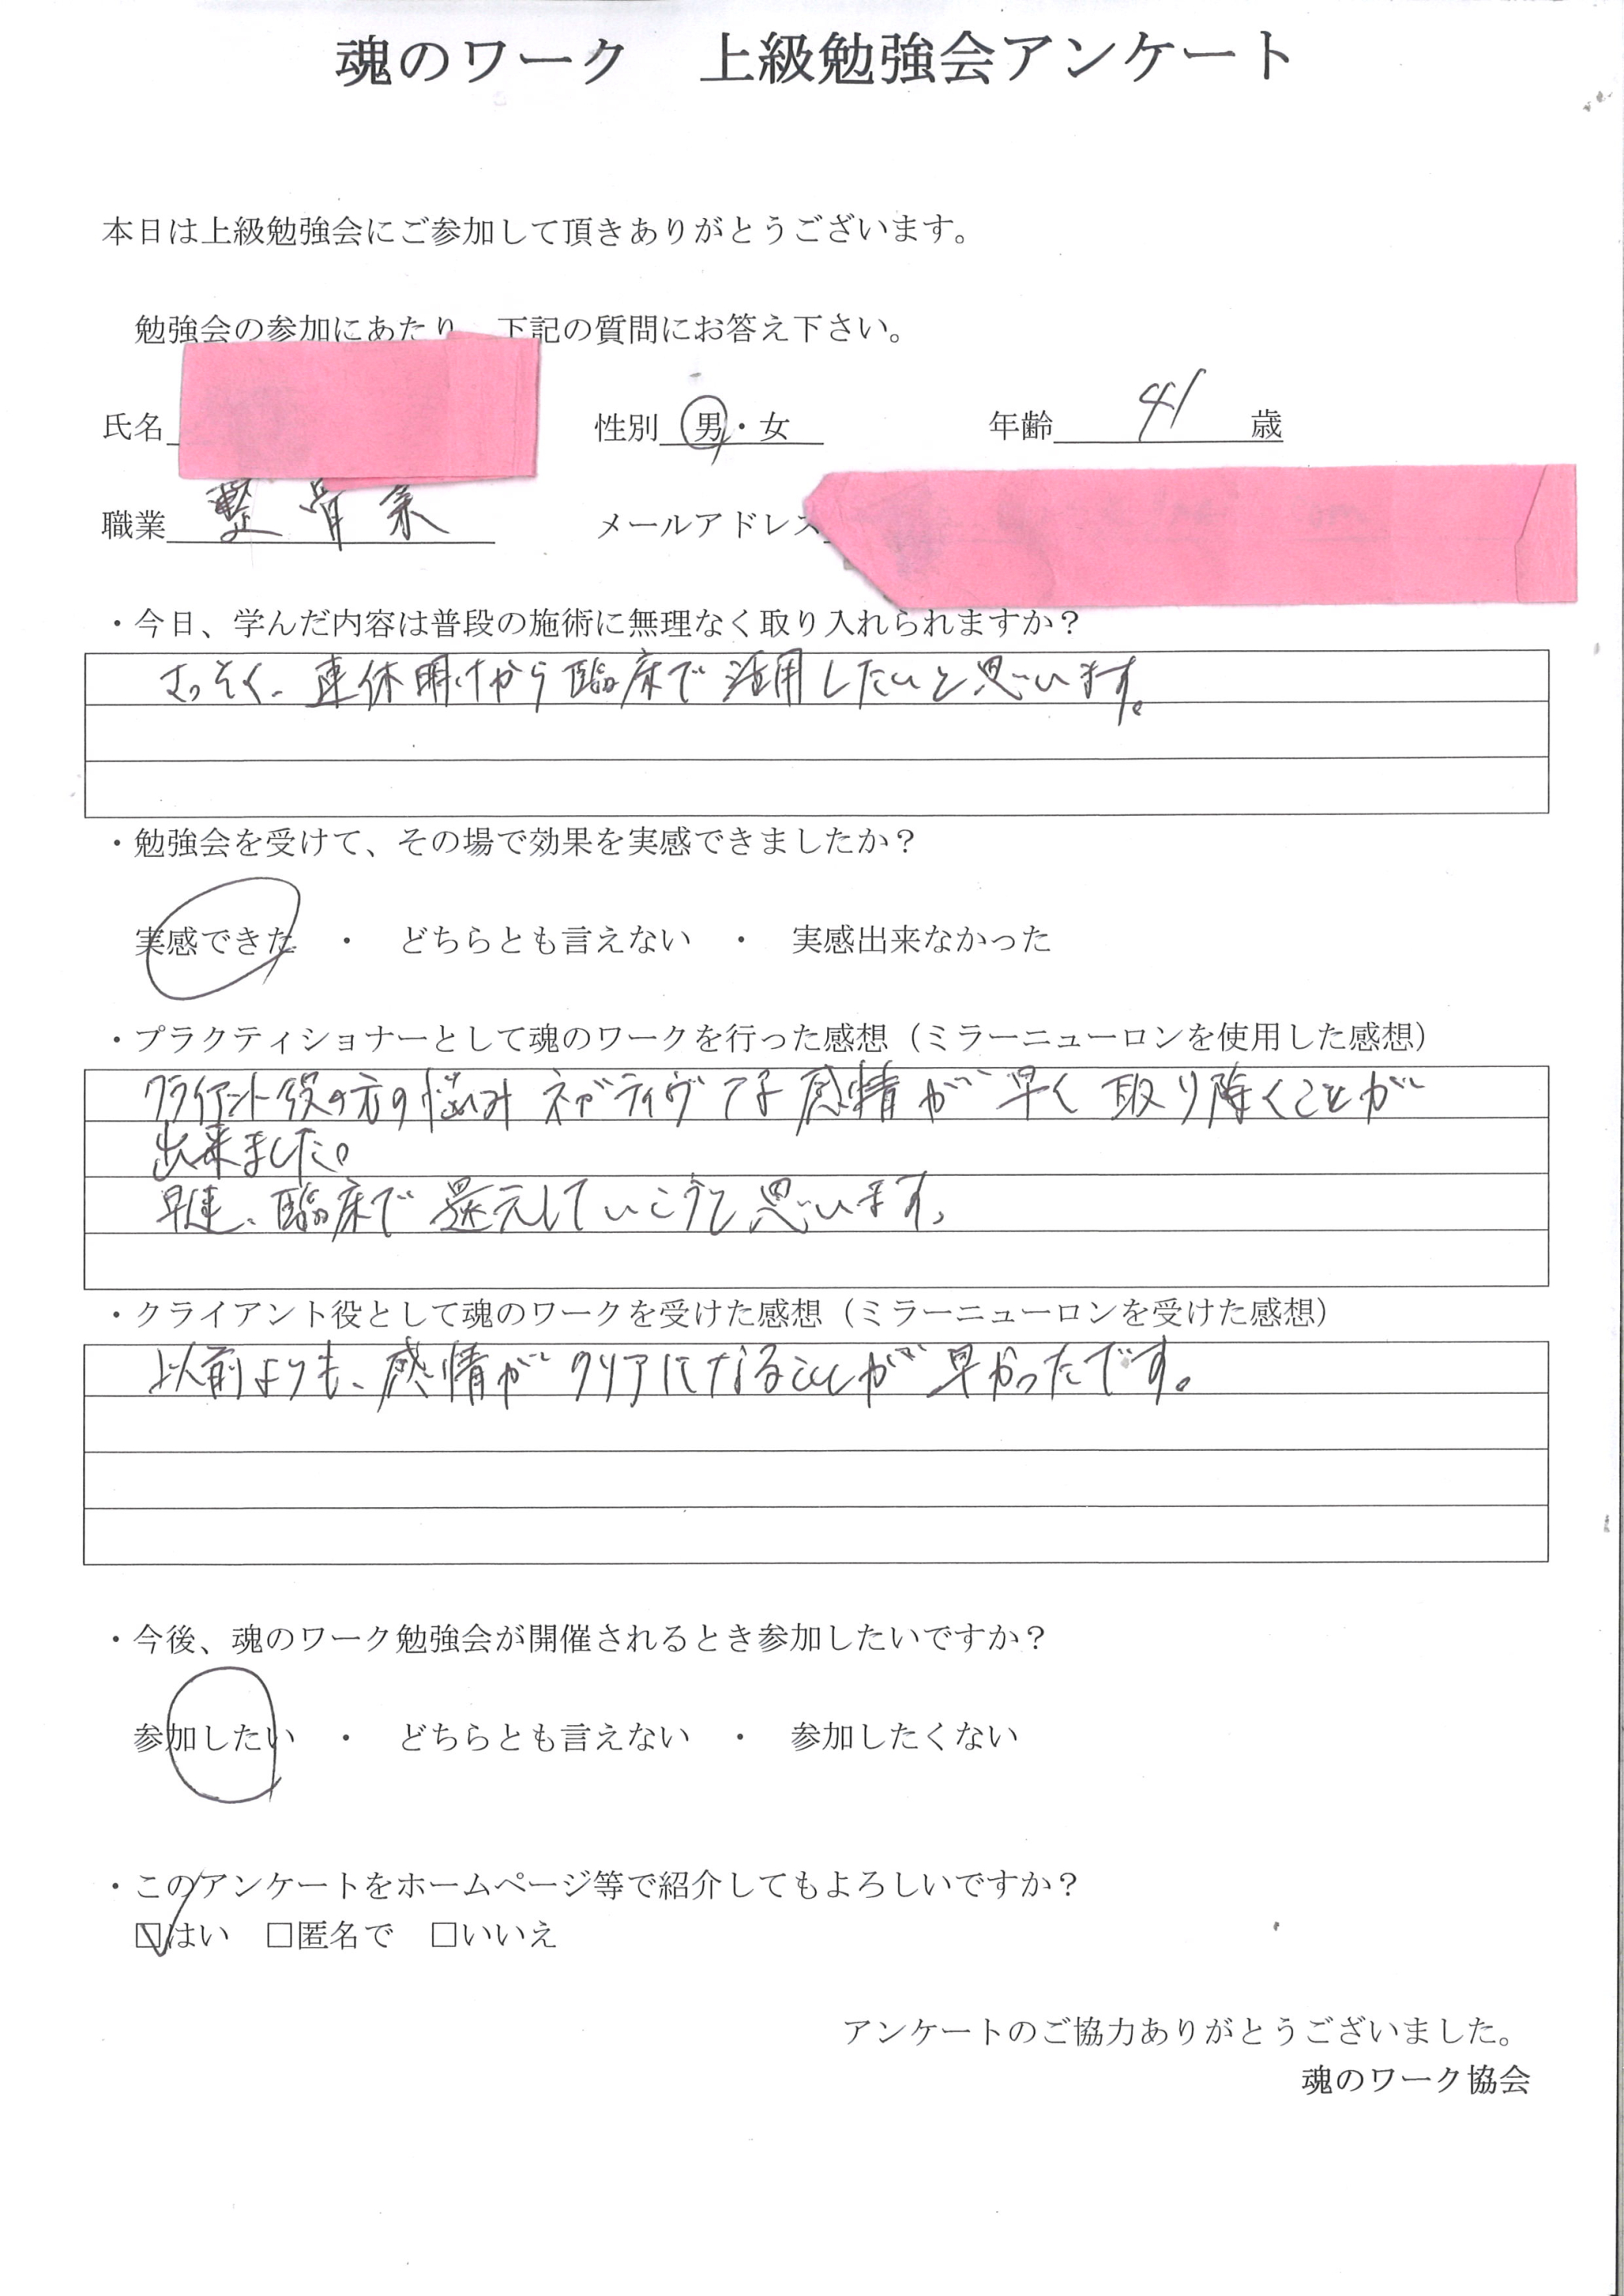 魂のワーク 上級勉強会アンケート
本日は上級勉強会にご参加して頂きありがとうございます。
勉強会の参加にあたり 下記の質問にお答え下さい。
氏名 性別 男・女 年齢 41 歳
職業 整骨業 メールアドレス
・今日、学んだ内容は普段の施術に無理なく取り入れられますか？
さっそく、連休明けから臨床で活用したいと思います。
・勉強会を受けて、その場で効果を実感できましたか？
実感できた ・ どちらとも言えない ・ 実感出来なかった
・プラクティショナーとして魂のワークを行った感想（ミラーニューロンを使用した感想）
クライアント役の方の悩み ネガティヴな感情が早く取り除くことが
出来ました。
早速、臨床で還元していこうと思います。
・クライアント役として魂のワークを受けた感想（ミラーニューロンを受けた感想）
以前よりも、感情がクリアになることが早かったです。
・今後、魂のワーク勉強会が開催されるとき参加したいですか？
参加したい ・ どちらとも言えない ・ 参加したくない
・このアンケートをホームページ等で紹介してもよろしいですか？
☑はい □匿名で □いいえ
アンケートのご協力ありがとうございました。
魂のワーク協会